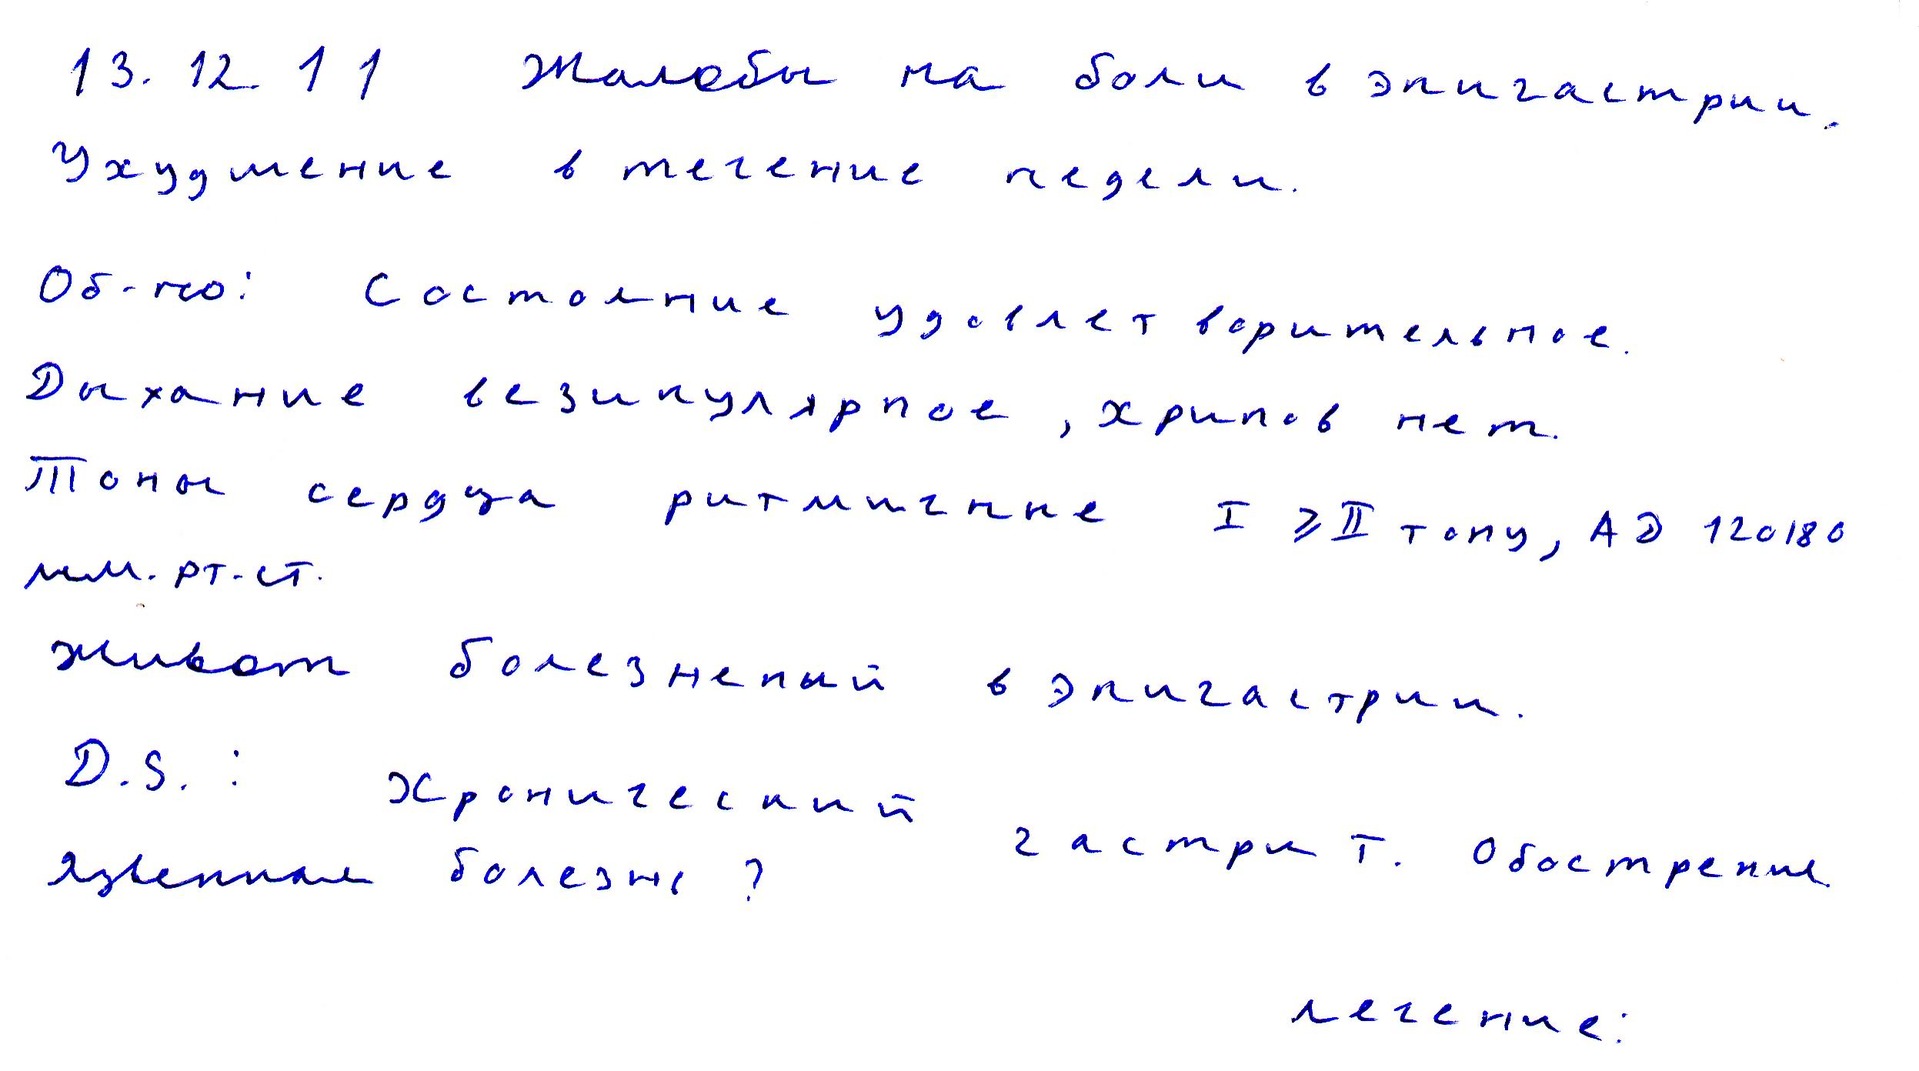 13.12.11 Жалобы на боли в эпигастрии.
Ухудшение в течение недели.
Об-но: Состояние удовлетворительное.
Дыхание везикулярное, хрипов нет.
Тоны сердца ритмичные I ≥ II тону, АД 120/80
мм.рт.ст.
Живот болезненый в эпигастрии.
D.S.: Хронический гастрит. Обострение
Язвенная болезнь?
лечение: